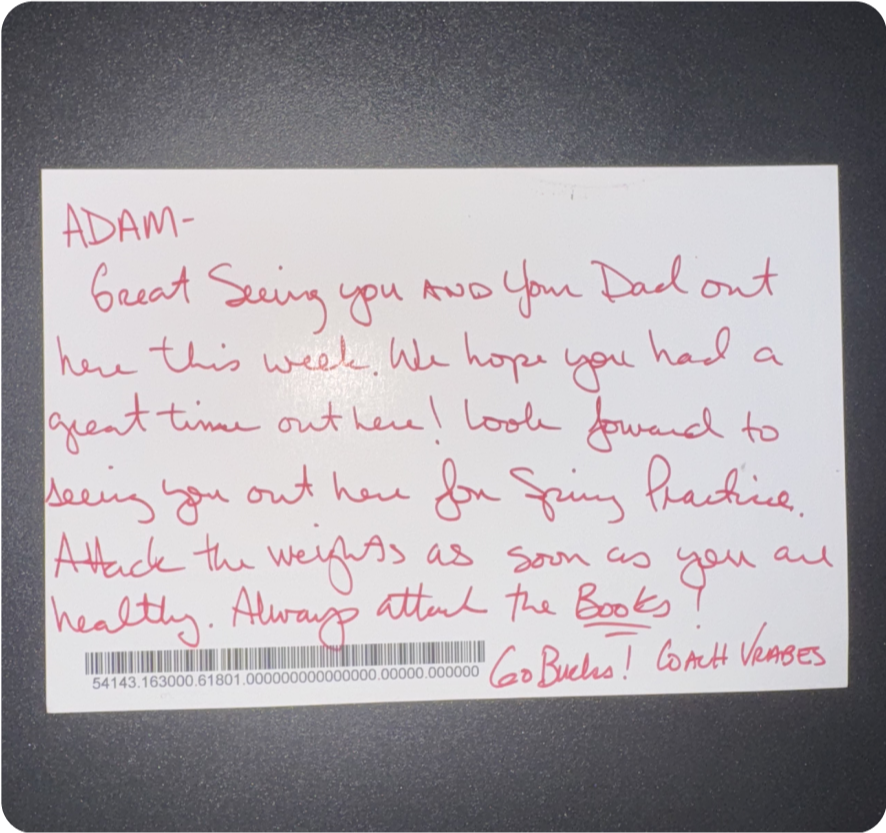 ADAM-
Great Seeing you AND your Dad out
here this week. We hope you had a
great time out here! Look forward to
seeing you out here for Spring Practice.
Attack the weights as soon as you are
healthy. Always attack the Books!
Go Bucks! COACH VRABES
54143.163000.61801.000000000000000.00000.000000